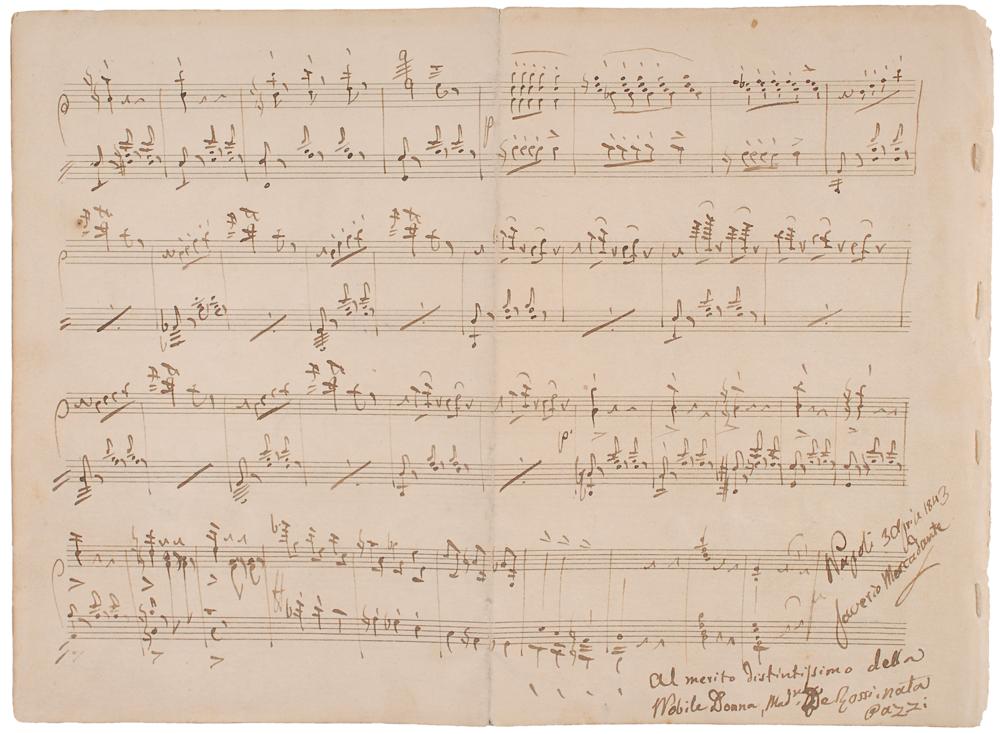 Napoli 3 Aprile 1843
Saverio Mercadante
Al merito distintissimo della
Nobile Donna, Mad.
Pazzi